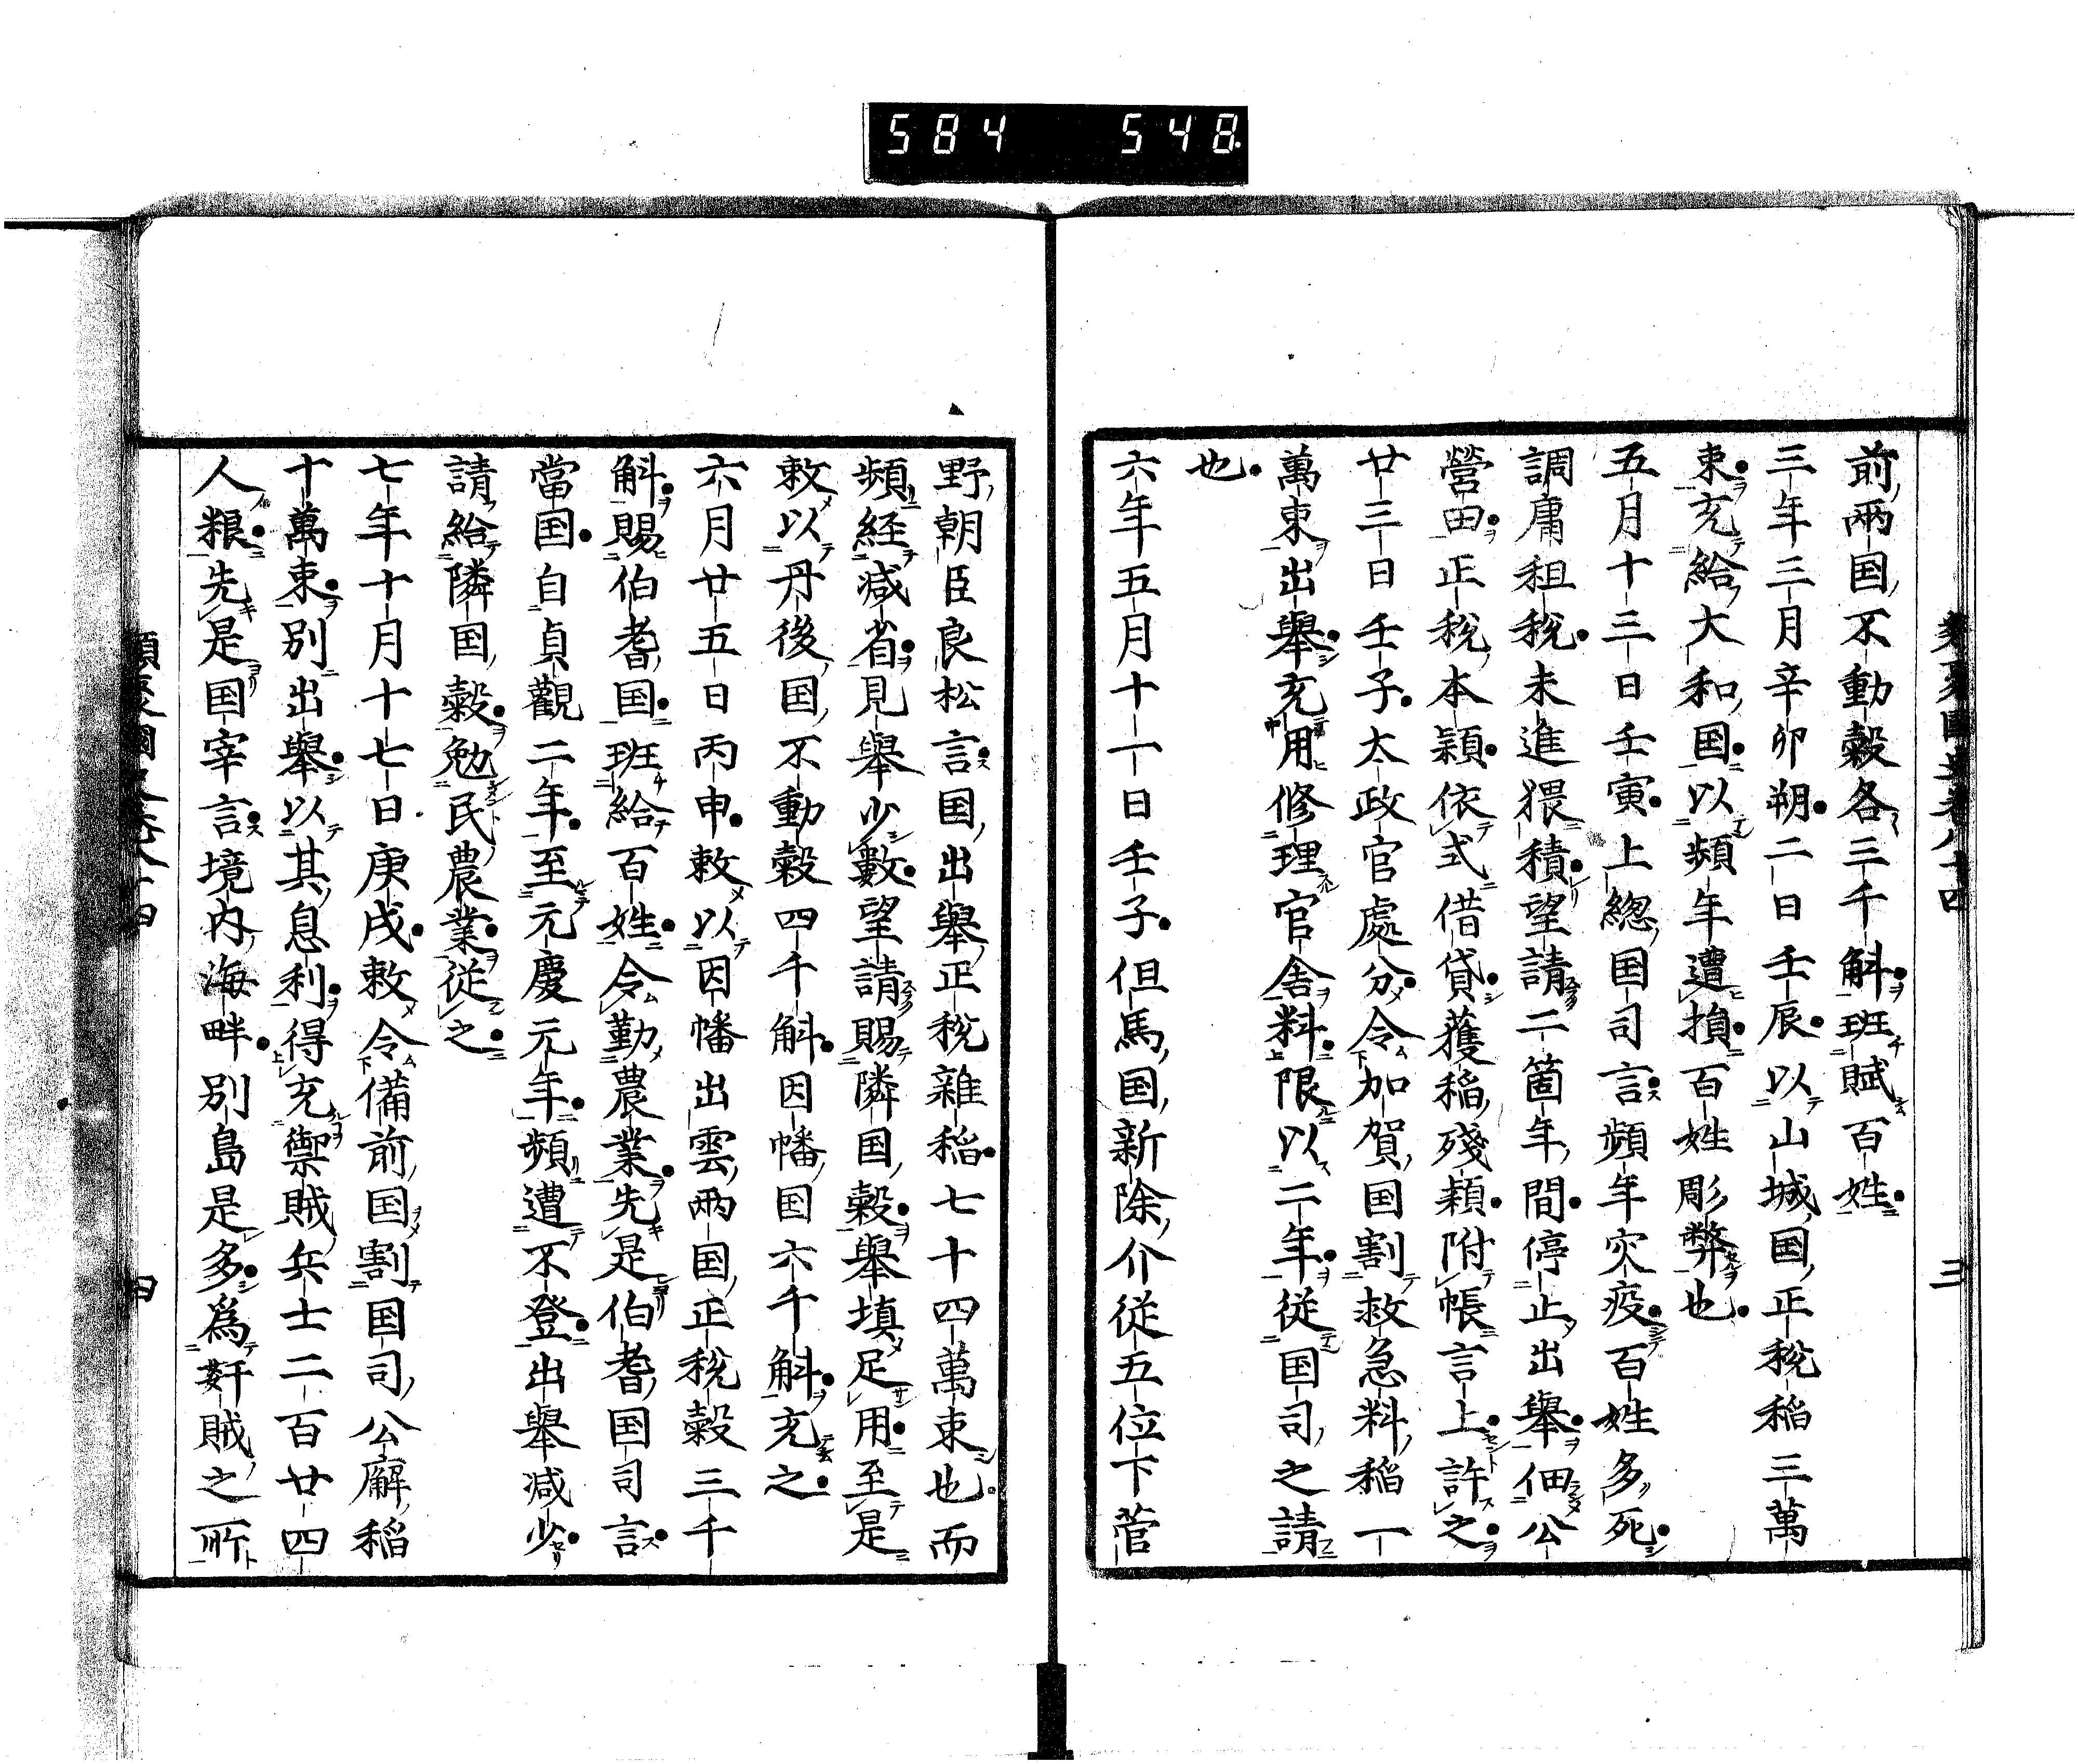 584 548
前両国不動穀各三千斛班賦百姓
三年三月辛卯朔二日壬辰以山城国正税稲三萬
束充給大和国以頻年遭損百姓彫弊也
五月十三日壬寅上総国司言頻年灾疫百姓多死
調庸租税未進猥積望請二箇年間停止出舉佃公
營田正税本穎依式借貸獲稲殘穎附帳言上許之
廿三日壬子太政官處分令加賀国割救急料稲一
萬束出舉充用修理官舎料限以二年従国司之請
也
六年五月十一日壬子但馬国新除介従五位下菅
野朝臣良松言国出舉正税雜稲七十四萬束也而
頻経减省見舉少數望請賜隣国穀舉填足用至是
敕以丹後国不動穀四千斛因幡国六千斛充之
六月廿五日丙申敕以因幡出雲両国正税穀三千
斛賜伯耆国班給百姓令勤農業先是伯耆国司言
當国自貞觀二年至元慶元年頻遭不登出舉减少
請給隣国穀勉民農業従之
七年十月十七日庚戌敕令備前国割国司公廨稲
十萬束別出舉以其息利得充禦賊兵士二百廿四
人粮先是国宰言境内海畔別島是多為奸賊之所
類聚國史巻八十四
三
四